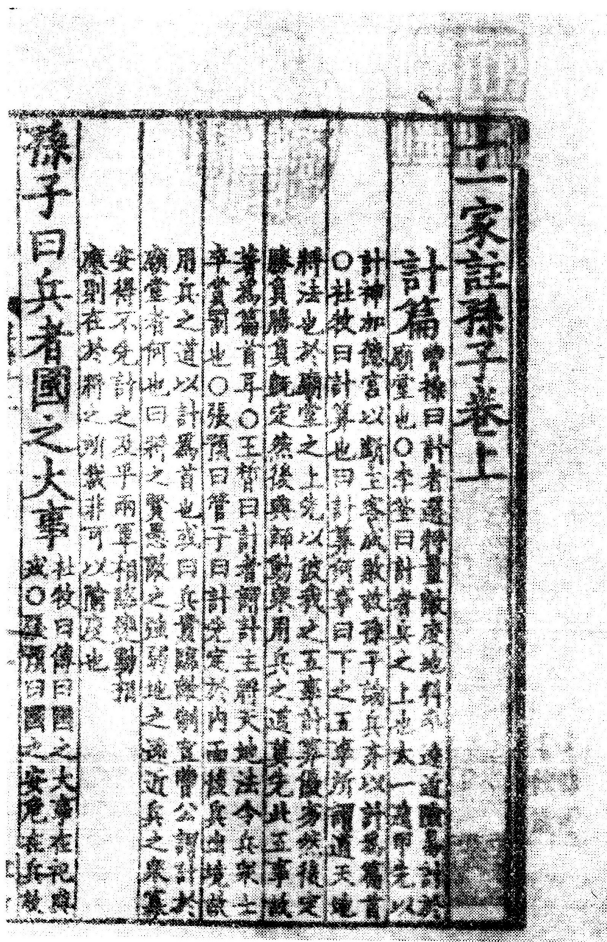 十一家註孫子卷上
計篇
曹操曰計者選將量敵度地料卒遠近險易計於
廟堂也○李筌曰計者兵之上也太一遁甲先以
計神加德宮以斷主客成敗故孫子論兵亦以計爲篇首
○杜牧曰計算也曰計算何事曰下之五事所謂道天地
將法也於廟堂之上先以彼我之五事計算優劣然後定
勝負勝負旣定然後興師動衆用兵之道莫先此五事故
著爲篇首耳○王晳曰計者謂計主將天地法令兵衆士
卒賞罰也○張預曰管子曰計先定於內而後兵出境故
用兵之道以計爲首也或曰兵貴臨敵制宜曹公謂計於
廟堂者何也曰將之賢愚敵之強弱地之遠近兵之衆寡
安得不先計之及乎兩軍相臨變動相
應則在於將之所裁非可以隃度也
孫子曰兵者國之大事
杜牧曰傳曰國之大事在祀與
戎○張預曰國之安危在兵故